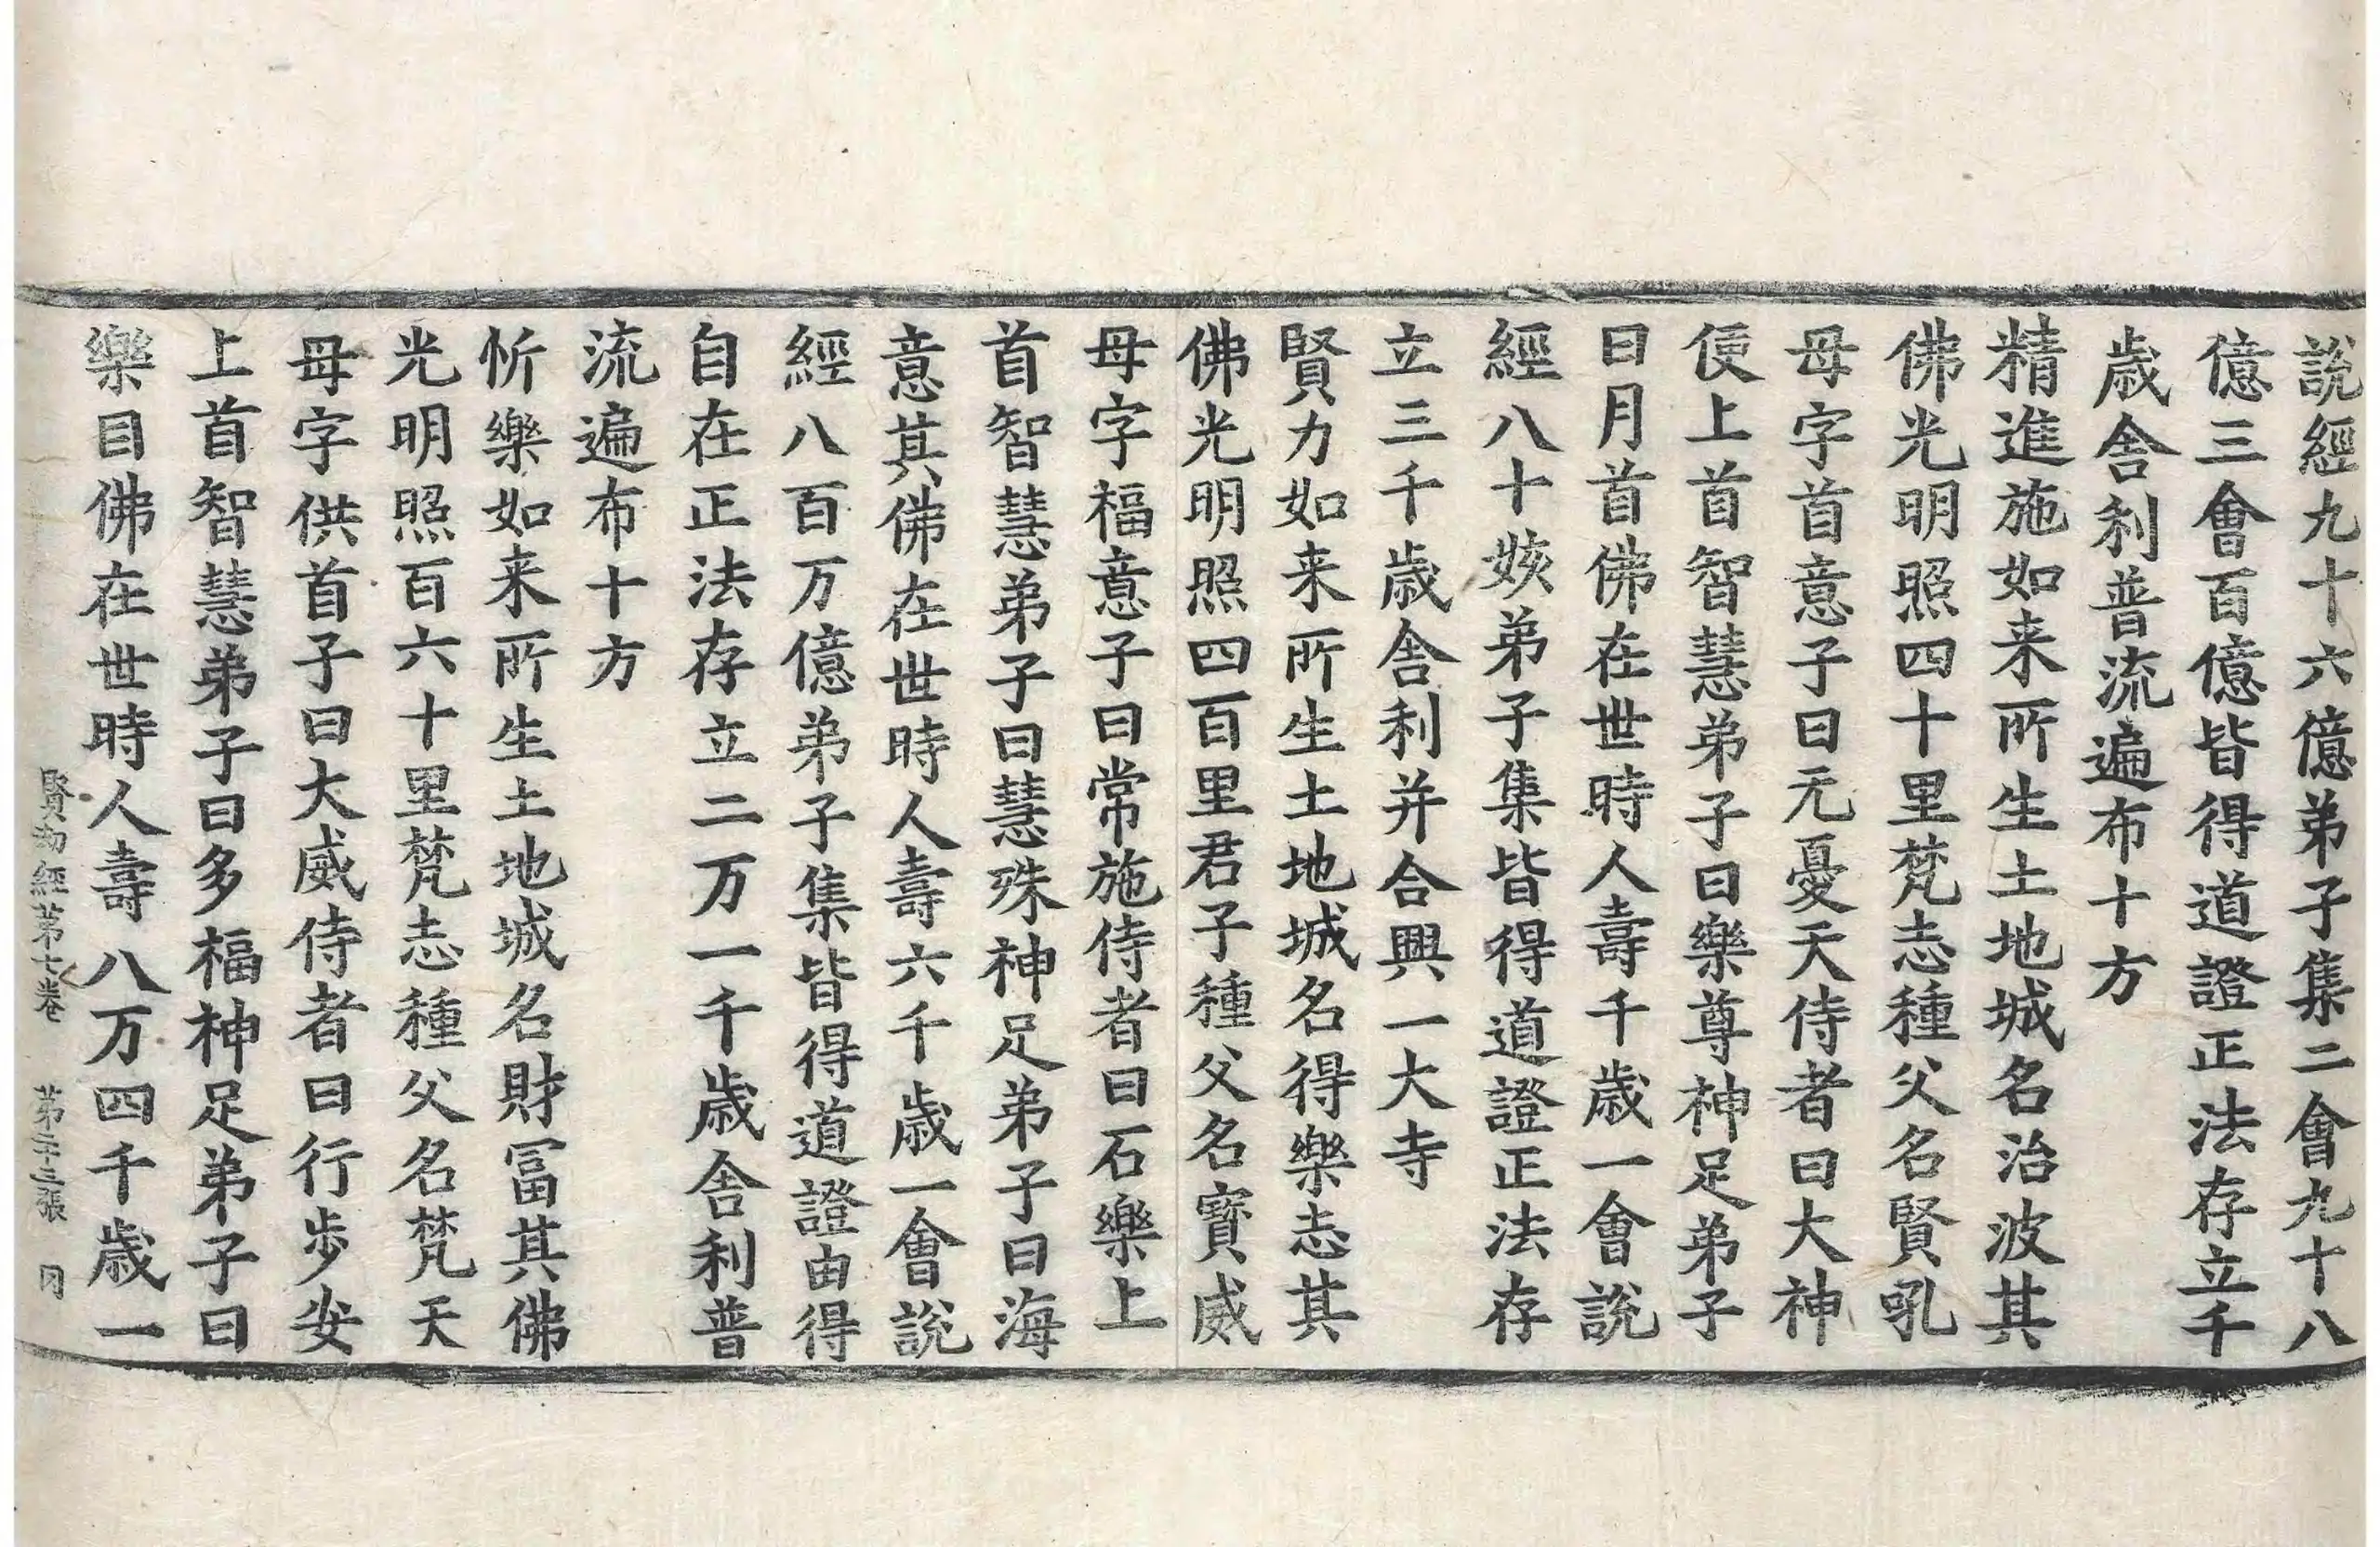 說經九十六億弟子集二會九十八
億三會百億皆得道證正法存立千
歲舍利普流遍布十方
精進施如来所生土地城名治波其
佛光明照四十里梵志種父名賢吼
母字首意子曰无憂天侍者曰大神
便上首智慧弟子曰樂尊神足弟子
日月首佛在世時人壽千歲一會說
經八十姟弟子集皆得道證正法存
立三千歲舍利并合興一大寺
賢力如来所生土地城名得樂志其
佛光明照四百里君子種父名寶威
母字福意子曰常施侍者曰石樂上
首智慧弟子曰慧殊神足弟子曰海
意其佛在世時人壽六千歲一會說
經八百万億弟子集皆得道證由得
自在正法存立二万一千歲舍利普
流遍布十方
忻樂如来所生土地城名財冨其佛
光明照百六十里梵志種父名梵天
母字供首子曰大威侍者曰行步安
上首智慧弟子曰多福神足弟子曰
樂目佛在世時人壽八万四千歲一
賢劫經第七卷 第二十三張